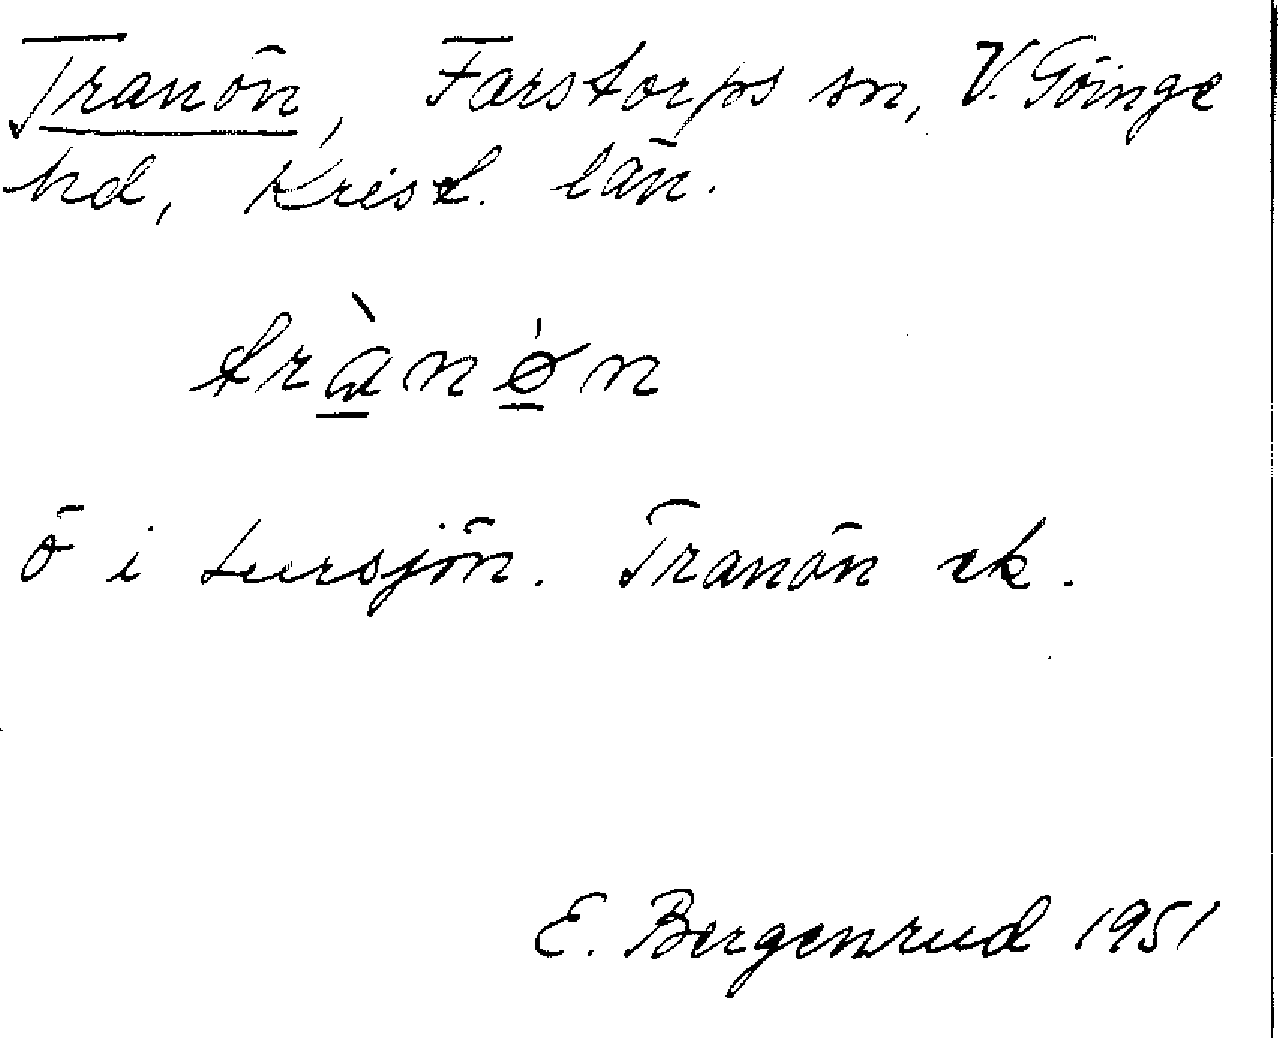 Tranön, Farstorps sn, V. Göinge
hd, Krist. län.
trànø̍n
ö i Lursjön. Tranön ek.
E. Bergenrud 1951